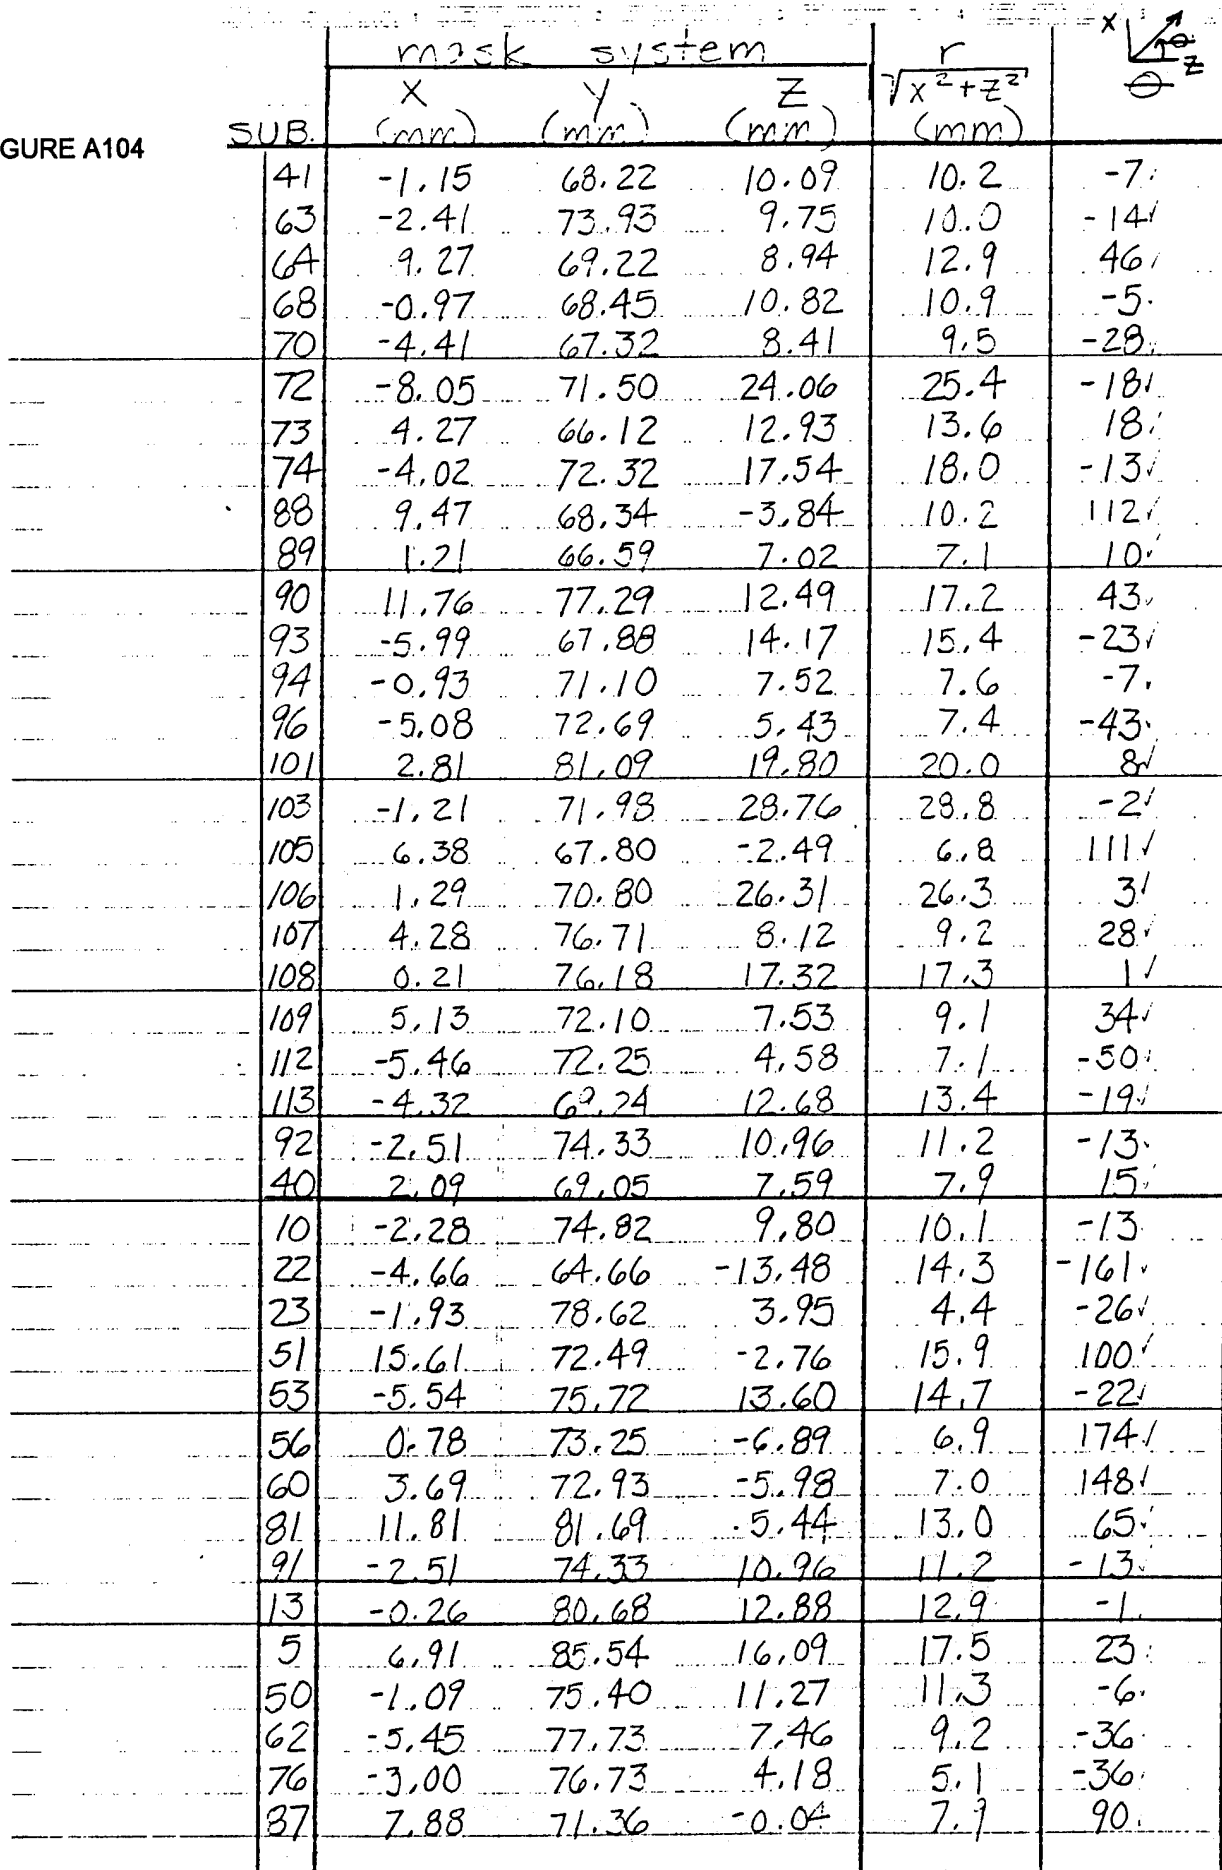 mask system r X
√x²+z² θ Z
X Y Z θ
GURE A104 SUB. (mm) (mm) (mm) (mm)
41 -1.15 68.22 10.09 10.2 -7
63 -2.41 73.93 9.75 10.0 -14✓
64 9.27 69.22 8.94 12.9 46
68 -0.97 68.45 10.82 10.9 -5
70 -4.41 67.32 8.41 9.5 -28
72 -8.05 71.50 24.06 25.4 -18
73 4.27 66.12 12.93 13.6 18
74 -4.02 72.32 17.54 18.0 -13✓
88 9.47 68.34 -3.84 10.2 112
89 1.21 66.59 7.02 7.1 10✓
90 11.76 77.29 12.49 17.2 43
93 -5.99 67.88 14.17 15.4 -23✓
94 -0.93 71.10 7.52 7.6 -7
96 -5.08 72.69 5.43 7.4 -43
101 2.81 81.09 19.80 20.0 8✓
103 -1.21 71.98 28.76 28.8 -2✓
105 6.38 67.80 -2.49 6.8 111✓
106 1.29 70.80 26.31 26.3 3✓
107 4.28 76.71 8.12 9.2 28✓
108 0.21 76.18 17.32 17.3 1✓
109 5.13 72.10 7.53 9.1 34✓
112 -5.46 72.25 4.58 7.1 -50
113 -4.32 69.24 12.68 13.4 -19✓
92 -2.51 74.33 10.96 11.2 -13
40 2.09 69.05 7.59 7.9 15
10 -2.28 74.82 9.80 10.1 -13
22 -4.66 64.66 -13.48 14.3 -161
23 -1.93 78.62 3.95 4.4 -26✓
51 15.61 72.49 -2.76 15.9 100✓
53 -5.54 75.72 13.60 14.7 -22✓
56 0.78 73.25 -6.89 6.9 174✓
60 3.69 72.93 -5.98 7.0 148✓
81 11.81 81.69 5.44 13.0 65
91 -2.51 74.33 10.96 11.2 -13
13 -0.26 80.68 12.88 12.9 -1
5 6.91 85.54 16.09 17.5 23
50 -1.09 75.40 11.27 11.3 -6
62 -5.45 77.73 7.46 9.2 -36
76 -3.00 76.73 4.18 5.1 -36
87 7.88 71.36 -0.04 7.9 90